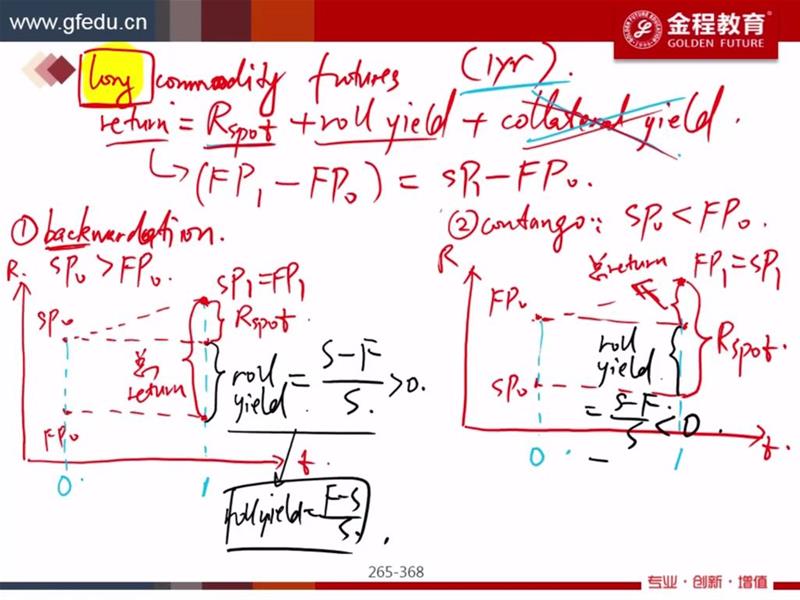 www.gfedu.cn
金程教育
GOLDEN FUTURE
long commodity futures (1yr).
return = Rspot + roll yield + collateral yield.
(FP1 - FP0) = SP1 - FP0.
① backwardation.
SP0 > FP0.
R.
SP1 = FP1
SP0
Rspot.
总 return
roll yield = S-F/S. > 0.
FP0
t.
0
1
roll yield = F-S/S.
② contango: SP0 < FP0.
R
总 return
FP1 = SP1
FP0
roll yield
Rspot.
SP0
= S-F./S < 0.
0
1
t.
265-368
专业·创新·增值